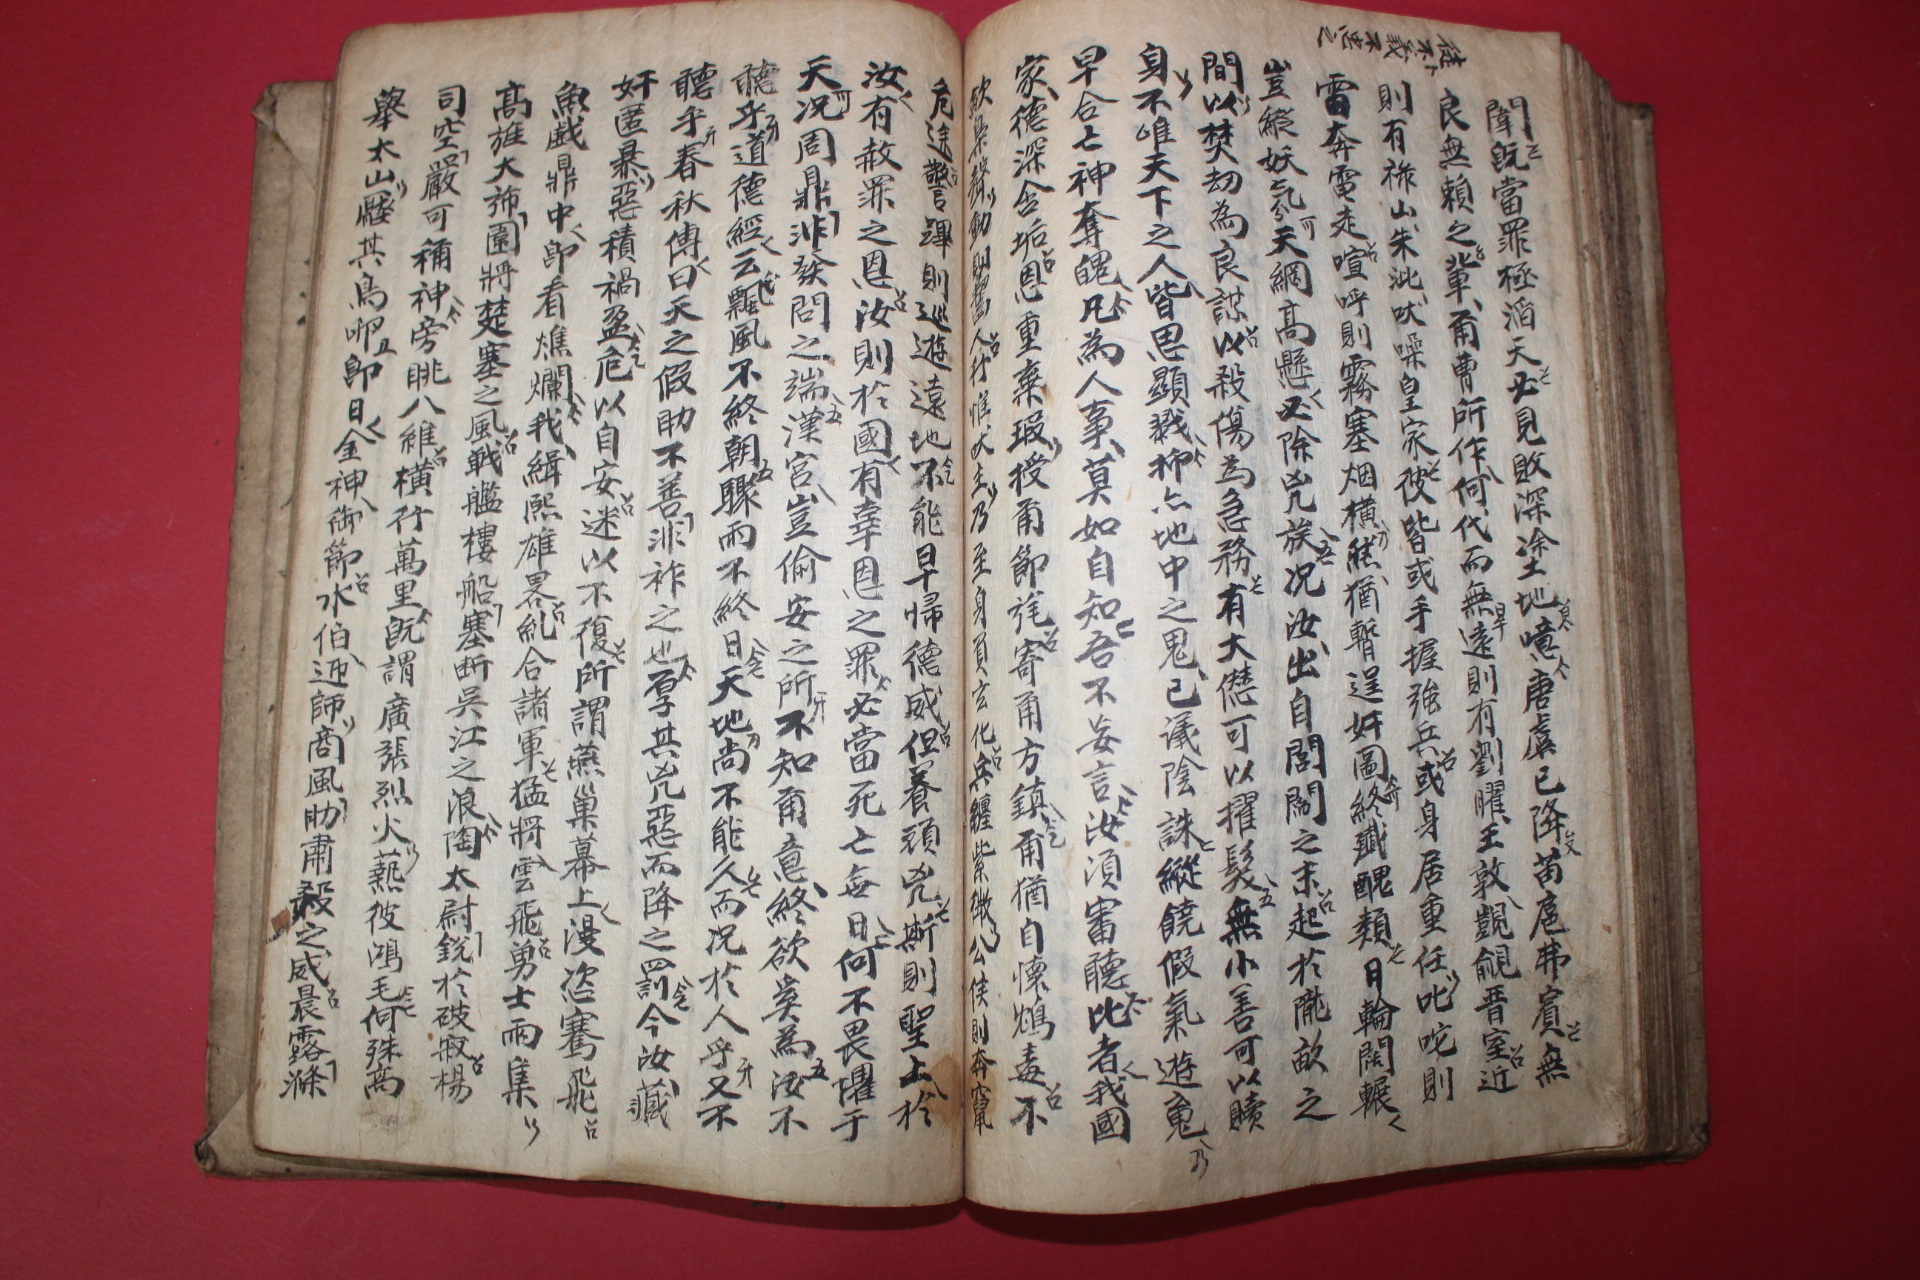 徒不義不忠之
闈旣當罪極滔天必見敗深塗地噫唐虞已降苗扈弗賓無
良無賴之輩爾曹所作何代而無遠則有劉曜王敦覬覦晉室近
則有祿山朱泚吠噪皇家彼皆或手握強兵或身居重任叱咤則
雷奔電走喧呼則霧塞烟橫然猶暫逞奸圖終殲醜類日輪闊輾
豈縱妖氛天網高懸必除兇族况汝出自閭閻之末起於隴畝之
間以焚劫為良謀以殺傷為急務有大愆可以擢髮無小善可以贖
身不唯天下之人皆思顯戮抑亦地中之鬼已議陰誅縱饒假氣遊魂
早合亡神奪魄凡為人事莫如自知吾不妄言汝須審聽比者我國
家德深含垢恩重棄瑕授爾節旄寄爾方鎮爾猶自懷鴆毒不
歛梟聲動則齧人行惟吠主乃至身負玄化兵纏紫微公侯則奔竄
危途警蹕則巡遊遠地不能早歸德威但養頑兇斯則聖上於
汝有赦罪之恩汝則於國有辜恩之罪必當死亡無日何不畏懼于
天况周鼎非發問之端漢宮豈偷安之所不知爾意終欲奚為汝不
聽乎道德經云飄風不終朝驟雨不終日天地尚不能久而况於人乎又不
聽乎春秋傳曰天之假助不善非祚之也厚其兇惡而降之罰今汝藏
奸匿暴惡積禍盈危以自安迷以不復所謂燕巢幕上漫恣騫飛
魚戱鼎中卽看燋爛我緝熙雄畧糺合諸軍猛將雲飛勇士雨集
高旌大旆圍將楚塞之風戰艦樓船塞斷吳江之浪陶太尉銳於破敵楊
司空嚴可稱神旁眺八維橫行萬里旣謂廣張烈火爇彼鴻毛何殊高
擧太山壓其鳥卵卽日金神御節水伯迎師商風助肅殺之威晨露滌